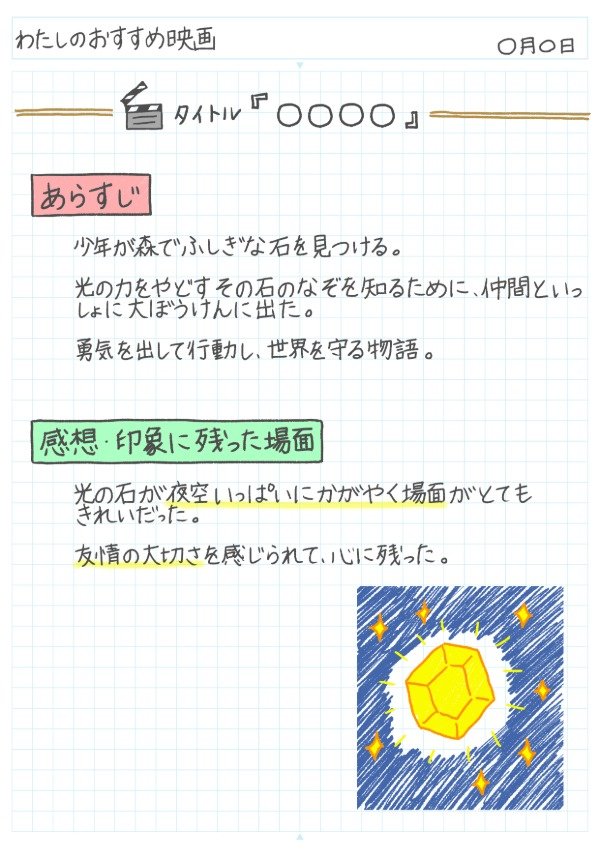 わたしのおすすめ映画
〇月〇日
タイトル『〇〇〇〇』
あらすじ
少年が森でふしぎな石を見つける。
光の力をやどすその石のなぞを知るために、仲間といっ
しょに大ぼうけんに出た。
勇気を出して行動し、世界を守る物語。
感想・印象に残った場面
光の石が夜空いっぱいにかがやく場面がとても
きれいだった。
友情の大切さを感じられて、心に残った。